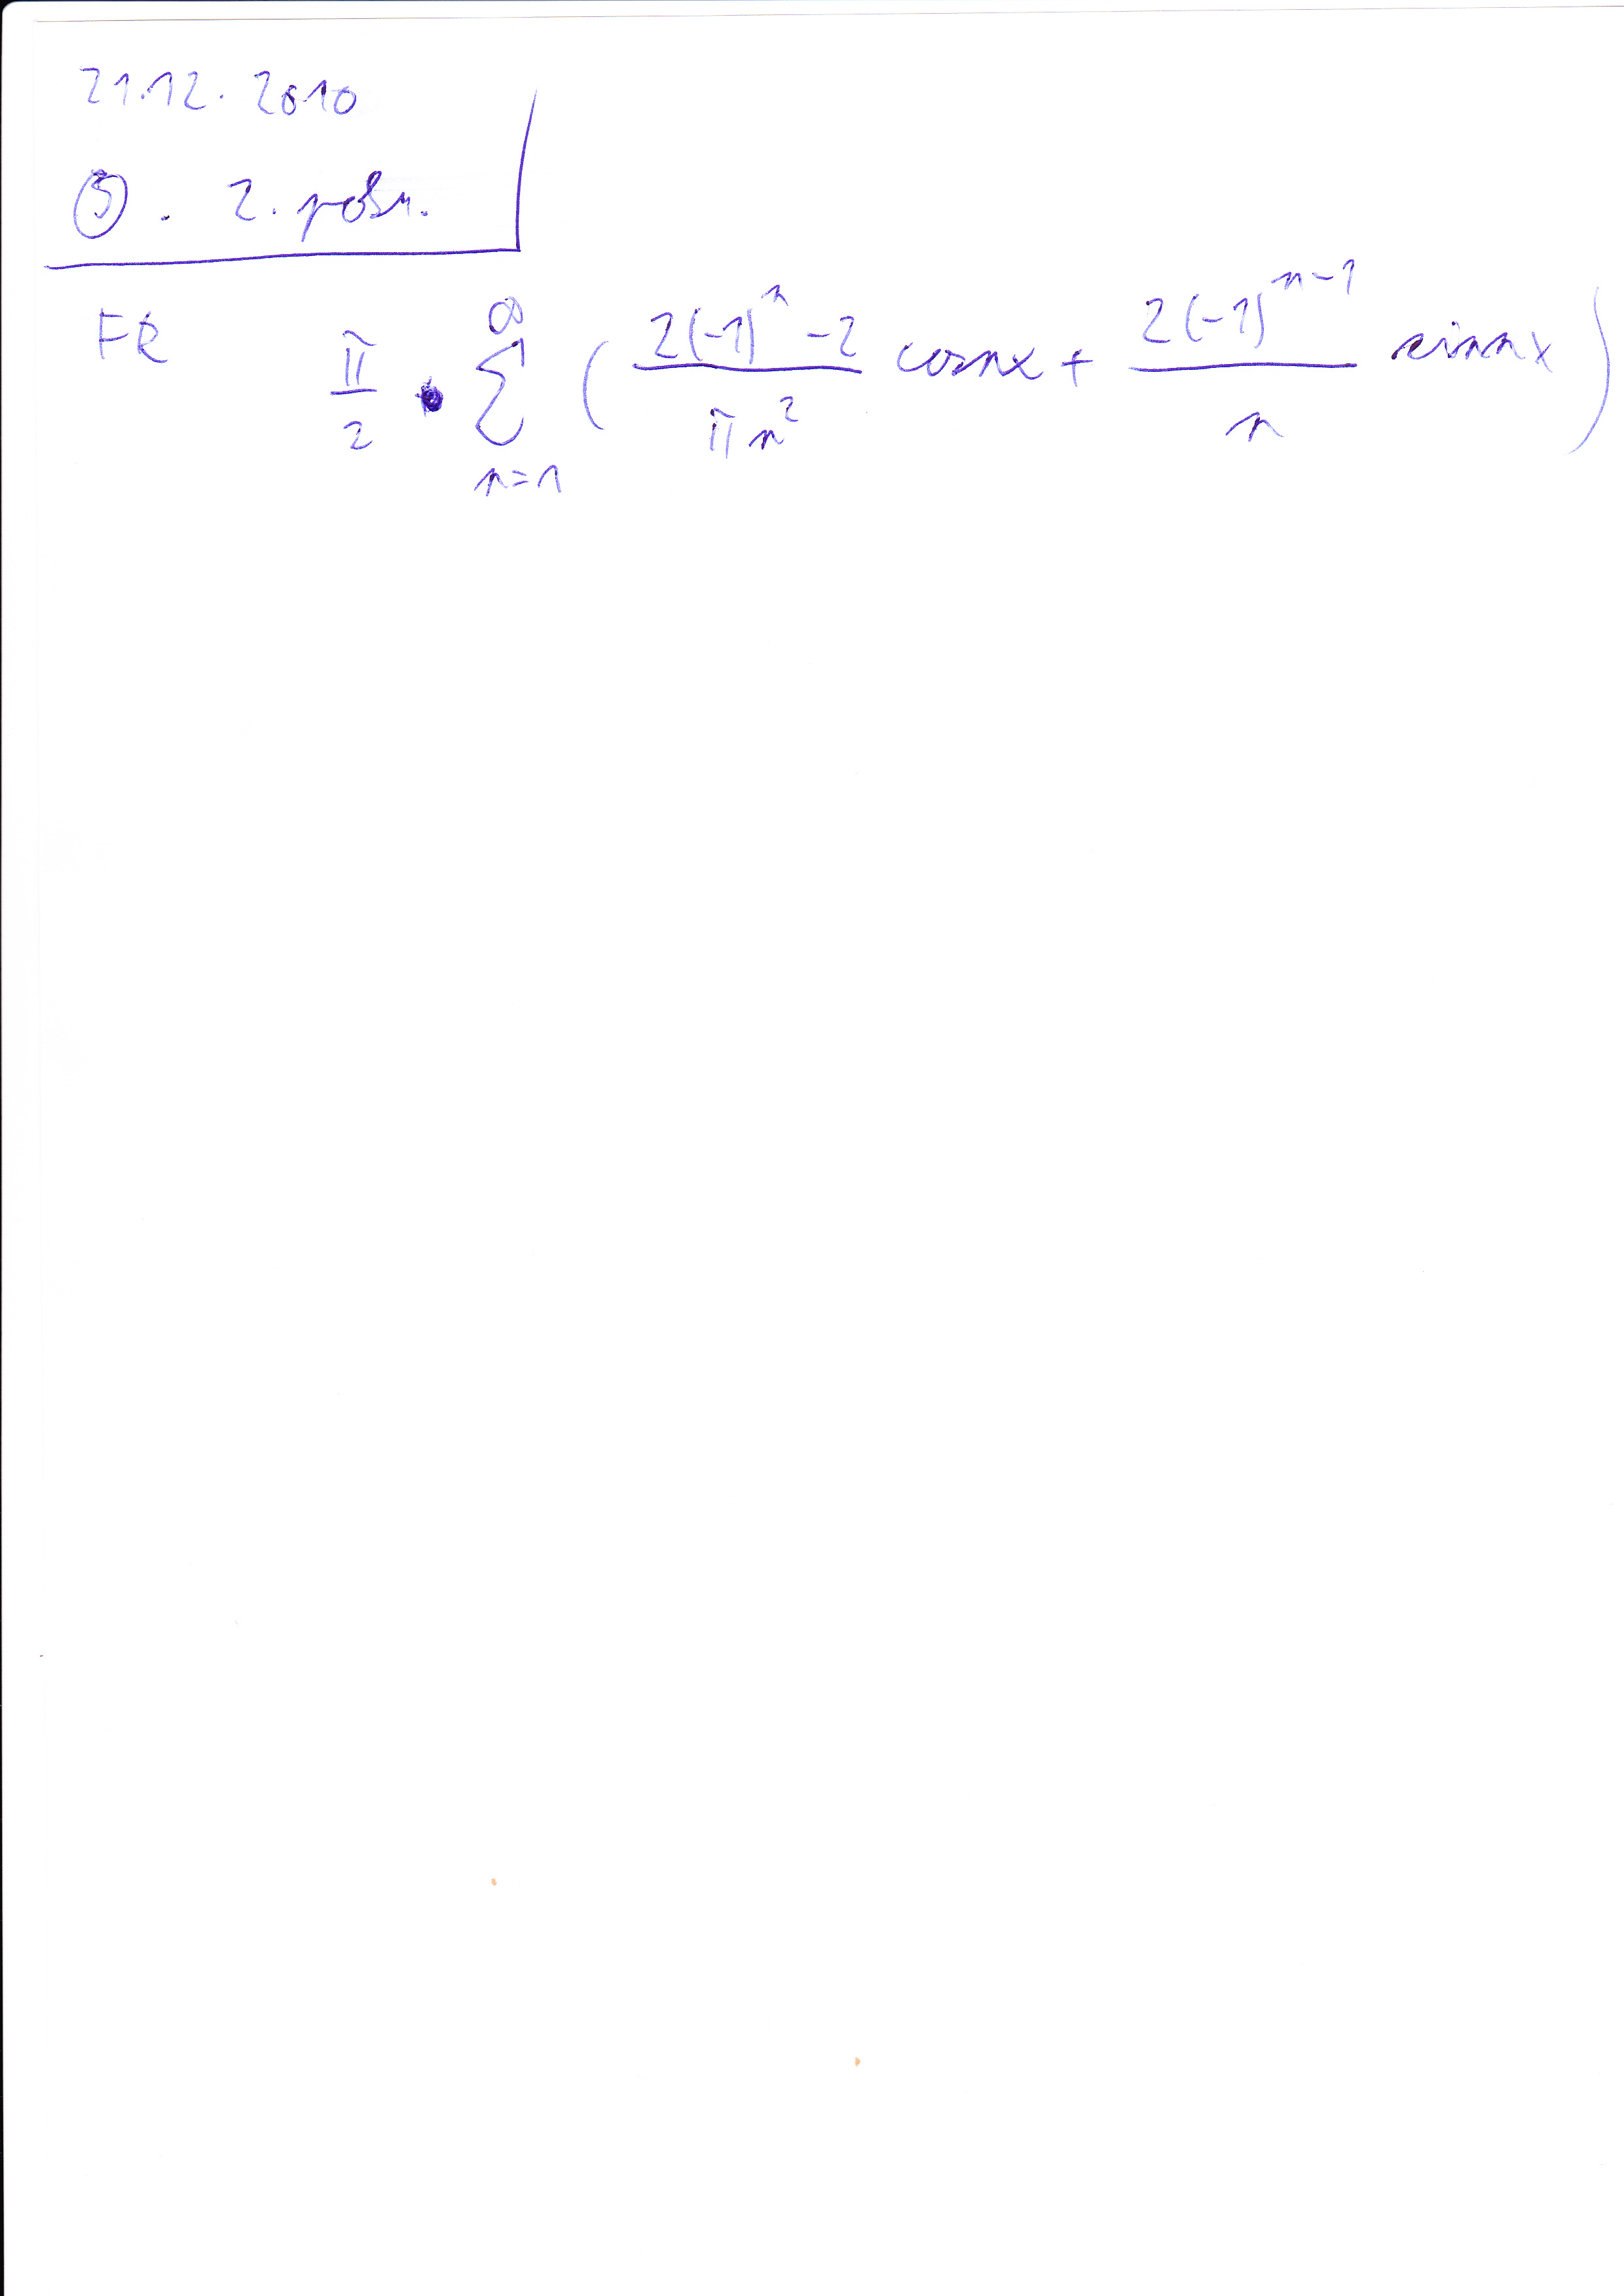 21.12. 2010
⑤. 2. pozn.
FR π/2 • ∑_{n=1}^{∞} ( (2(-1)^n - 2)/(π n^2) cos nx + (2(-1)^{n-1})/n sin nx )